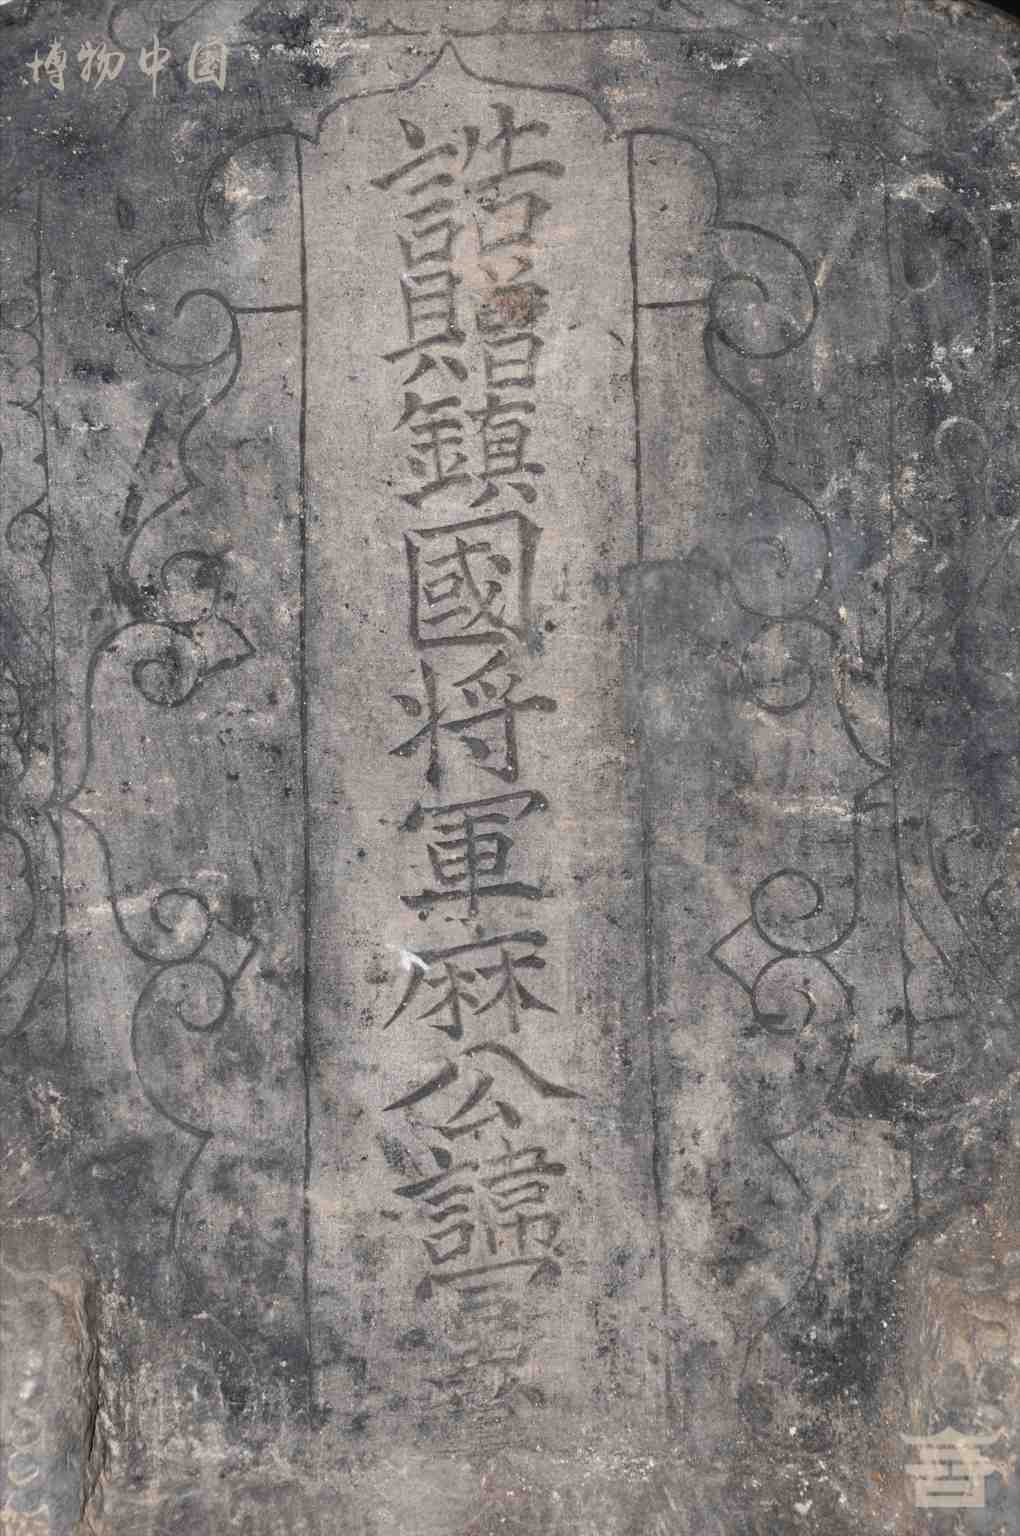 博物中国
誥贈鎮國将軍麻公諱